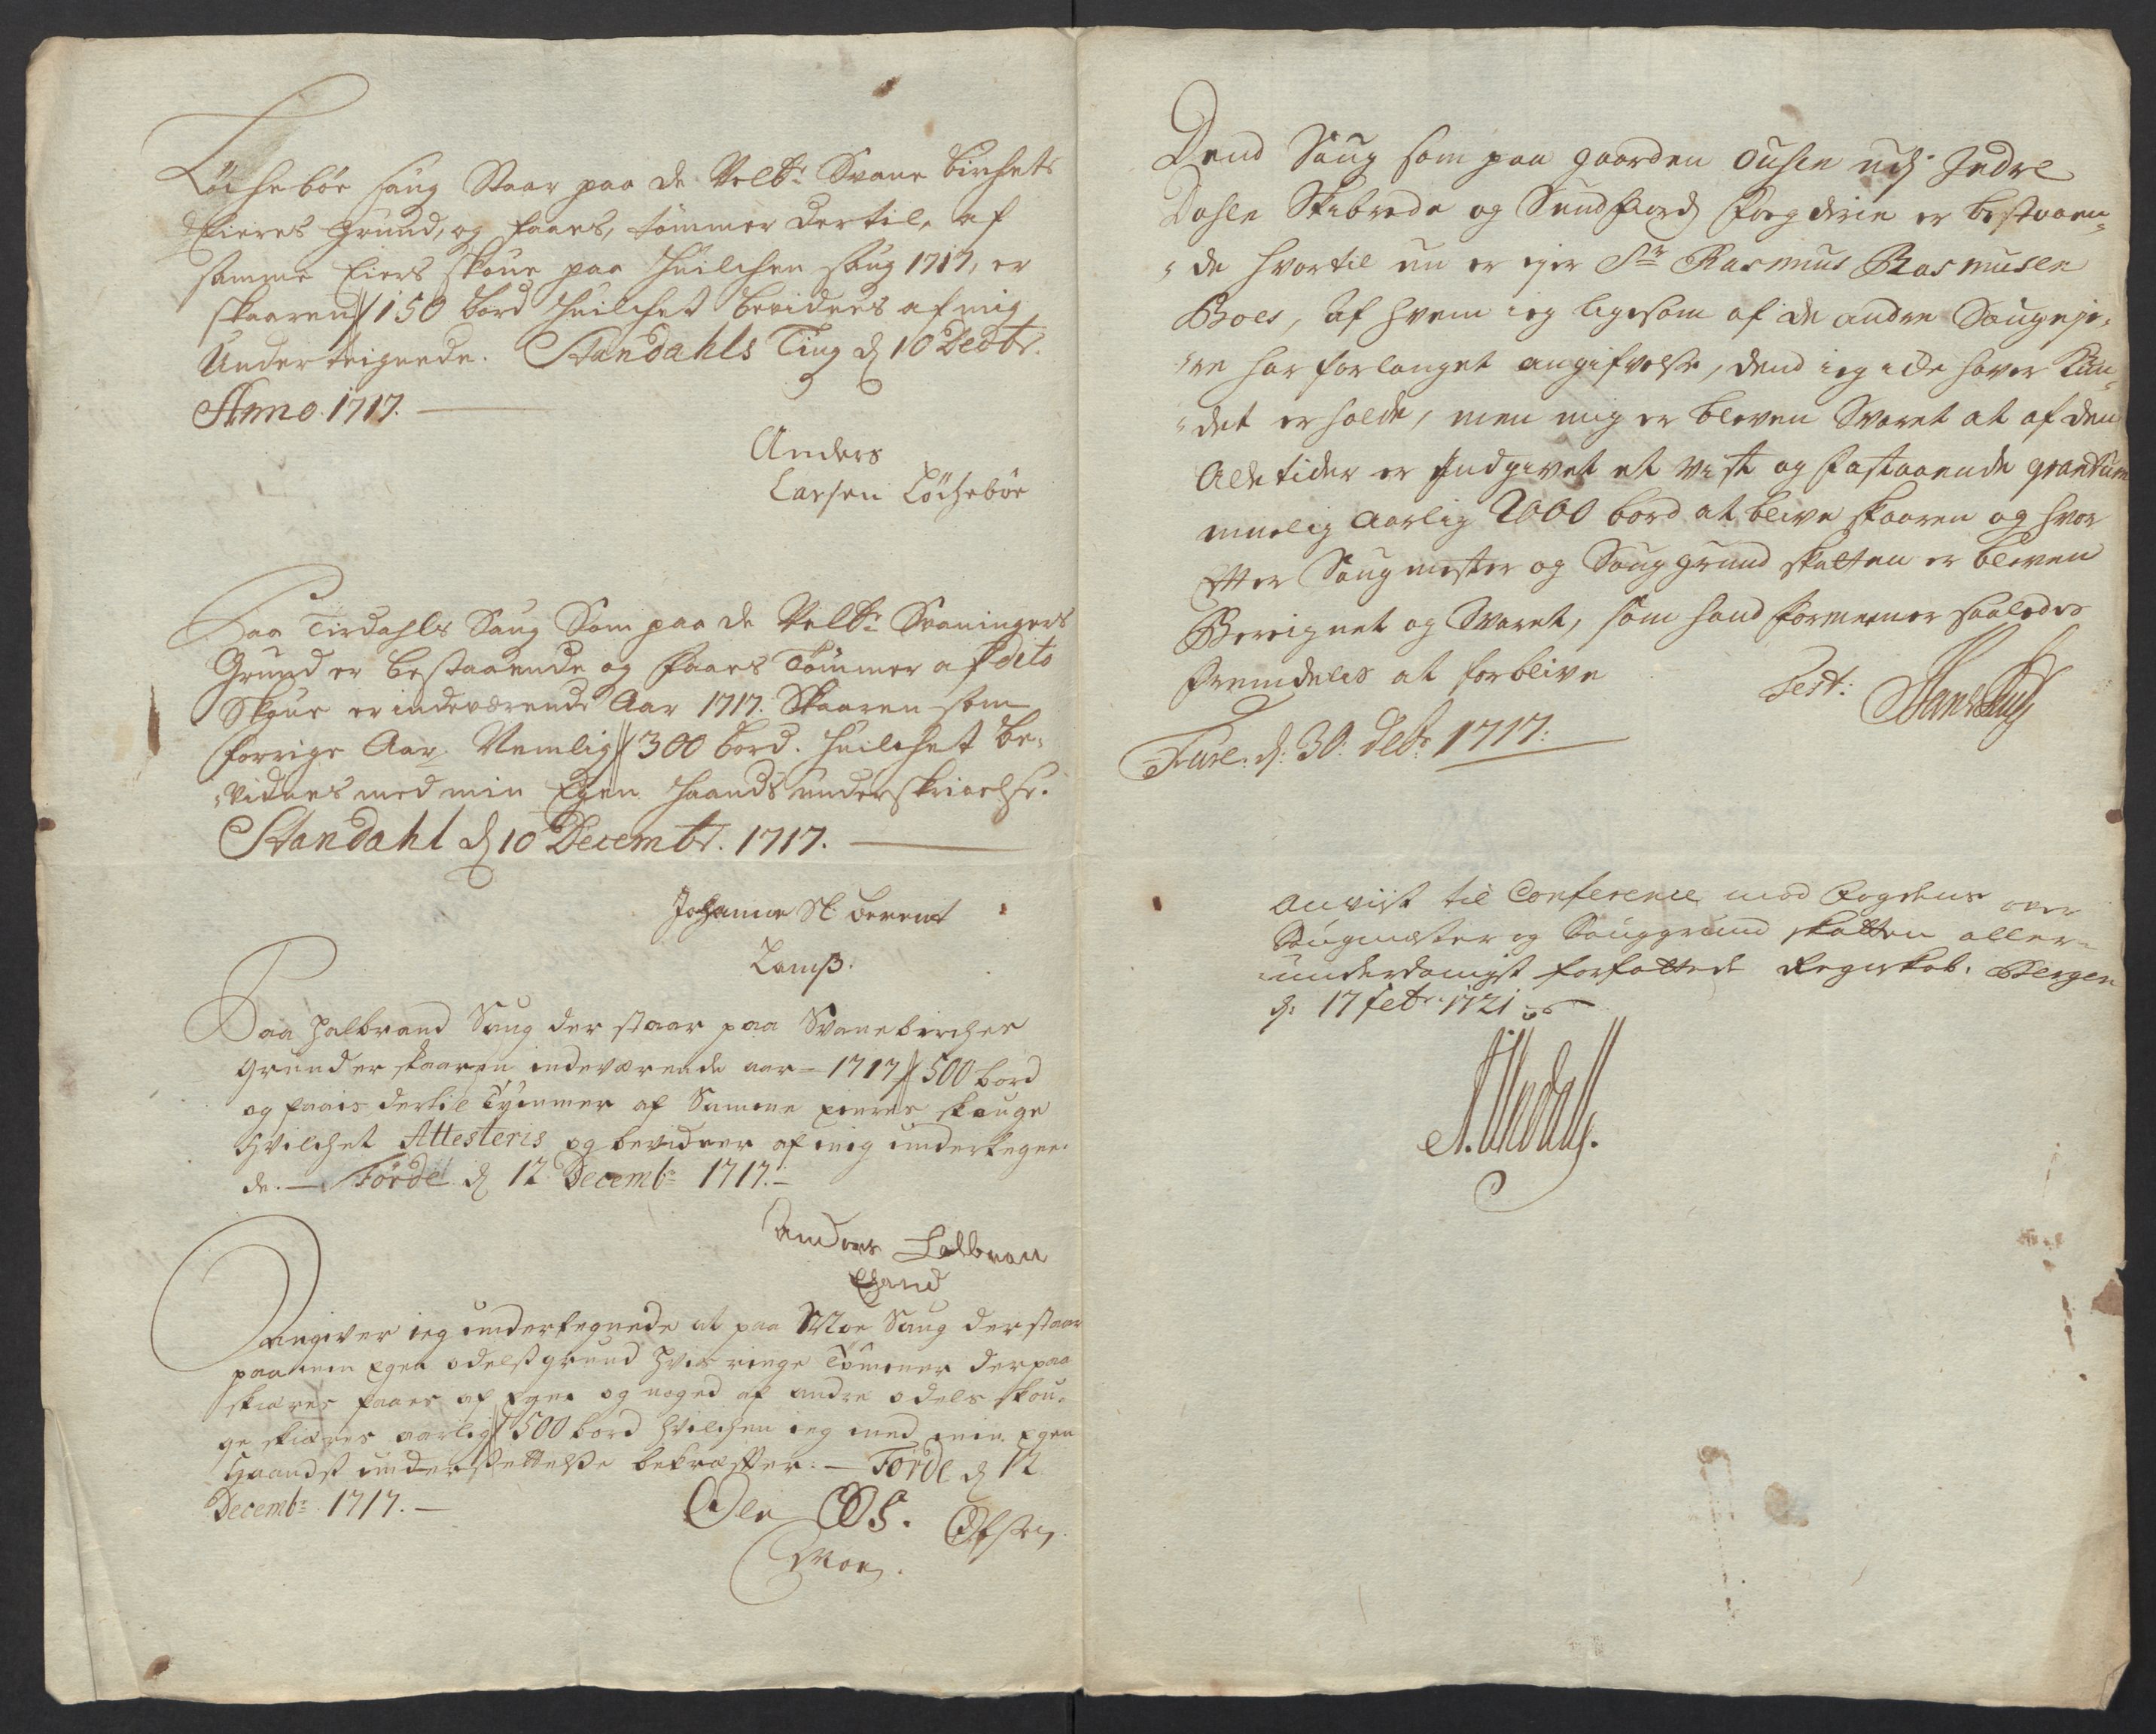 Löcheböe saug Staar paa de Velb: Svane birchets
Eieres grund, og faaes, tømmer dertil, af
samme Eiers skoue paa huilchen saug 1717, er
skaaren // 150 bord huilchet bevidnes af mig
Underteignede. Standahls Ting d 10 Decbr.
Anno. 1717.
Anders
Larsen Löchebøe
Paa Tirdahls Saug Som paa de Velb: Svaningers
Grund er bestaaende og faaes Tømmer af dito
Skoue er indeværende Aar 1717. Skaaren som
forrige Aar. Nemlig // 300 bord. huilchet be-
vidnes med min Egen haands underskrivelse.
Standahl d 10 Decembr. 1717.
Johanne Sl: berent
Lamss.
Paa halbrand Saug der staar paa Svanebirches
grund er skaaren indeværende aar 1717 // 500 bord
og faais dertil Tymmer af Samme eieres skouge
hvilchet Attesteris og bevidner af mig undertegne-
de. Førde d 12 Decemb: 1717.
Anders Halbran
Egand
Angiver ieg undertegnede at paa Moe Saug der staar
paa min egen odelss grund hvis ringe Tømmer der paa
skiæres faaes af Egne og noged af andre odels skou-
ge skiæres aarlig // 500 bord hvilchen ieg med min egen
haandss understettelsse bekræfter. Førde d 12
Decemb: 1717.
Ole OOS. Olsen
Moe.
Dend Saug som paa gaarden ousen udj Indre
Dahls Skibrede og Sundfiord fogderie er bestaaen-
de hvortil nu er eier Sr Rasmus Rasmusen
Boes, af hvem ieg ligesom af de andre Saugeje-
re har forlanget angifvelse, dend ieg icke haver kun-
det erholde, men mig er bleven Svaret at af den
Alle tider er Indgivet et vist og fastaaende qvantum
nemlig Aarlig 2000 bord at blive skaaren og hvor
Etter Saugmester og Sauggrund skatten er bleven
Bereignet og Svaret, som hand formener saaledes
fremdeles at forblive
Test:
d: 30: decbr 1717:
Anvist til Conference med Fogdens over
Saugmester og Sauggrund skatten aller-
underdanigst forfattede Regnskab. Bergen
d: 17 febr: 1721